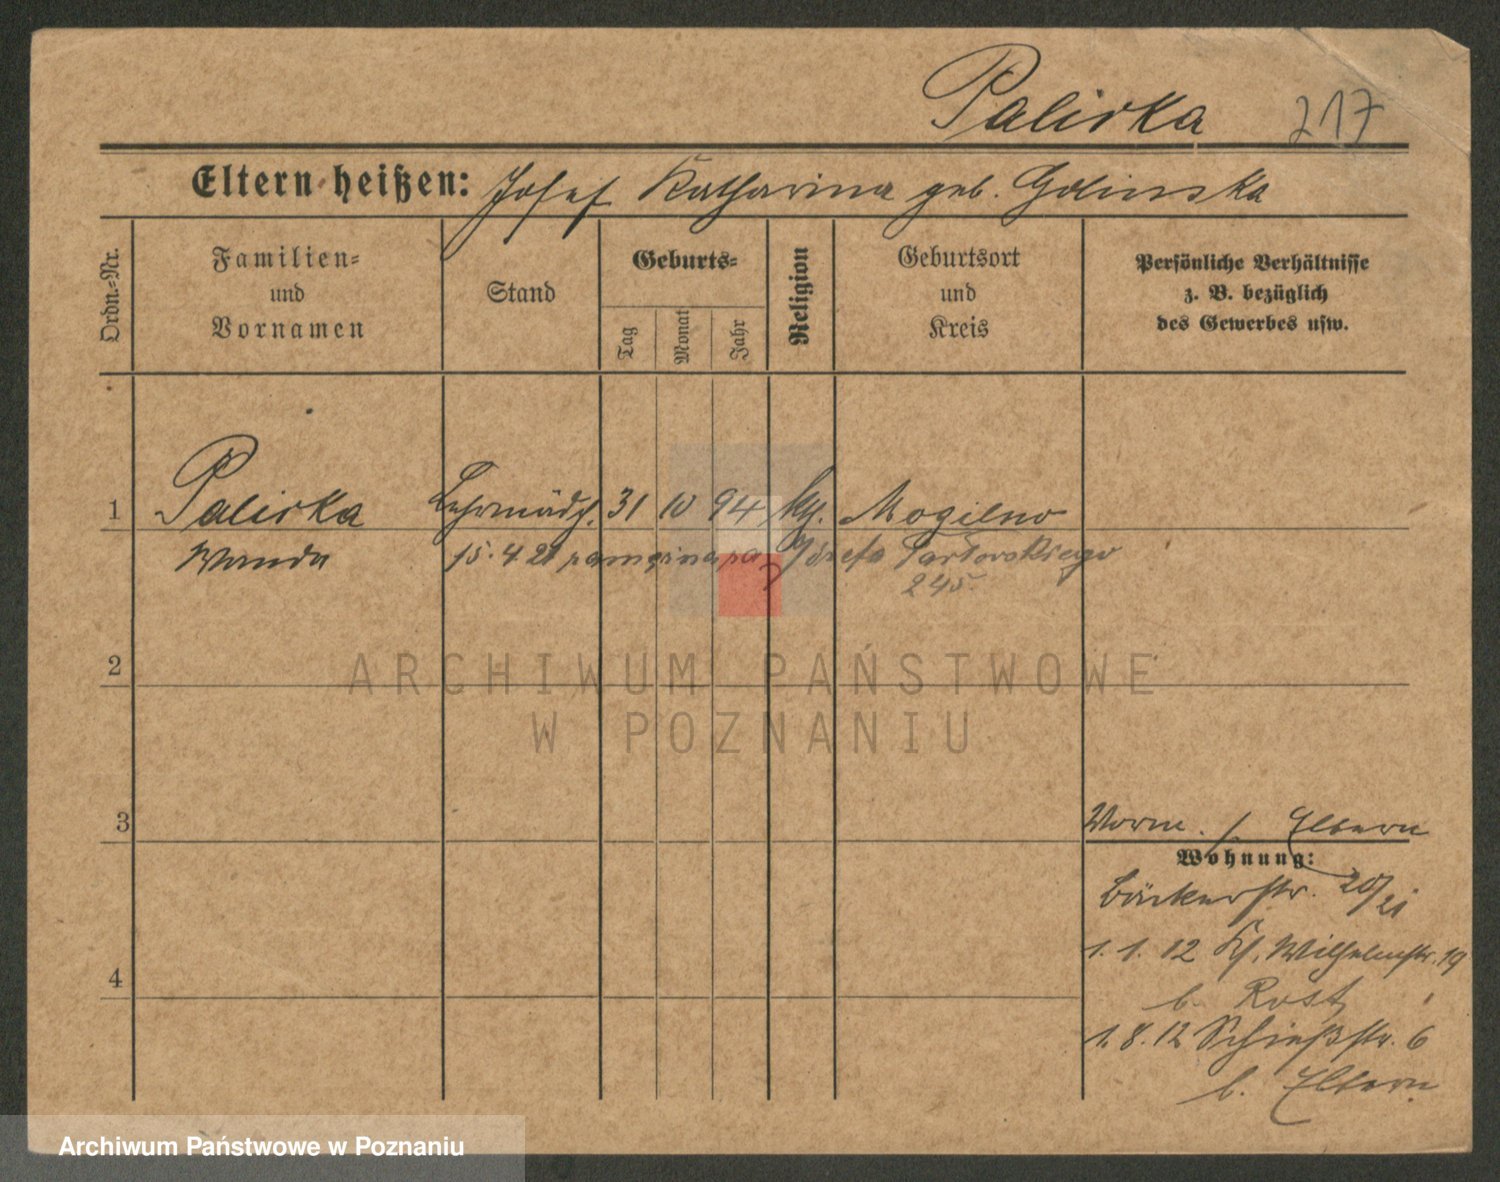 Palirka 217
Eltern heißen: Josef Katharina geb. Golinska
Ordn.-Nr.
Familien-
und
Vornamen
Stand
Geburts-
Tag
Monat
Jahr
Religion
Geburtsort
und
Kreis
Persönliche Verhältnisse
z. B. bezüglich
des Gewerbes usw.
1 Palirka Lehrmädch. 31 10 94 kth. Mogilno
Wanda 15. 4 21 Józefa
245.
2
ARCHIWUM PAŃSTWOWE
W POZNANIU
3
Eltern
Wohnung:
Bäckerstr. 20/21
4
1. 1. 12 Kl. Wilhelmstr. 19
b. Rost
1. 8. 12 Schießstr. 6
b. Eltern
Archiwum Państwowe w Poznaniu